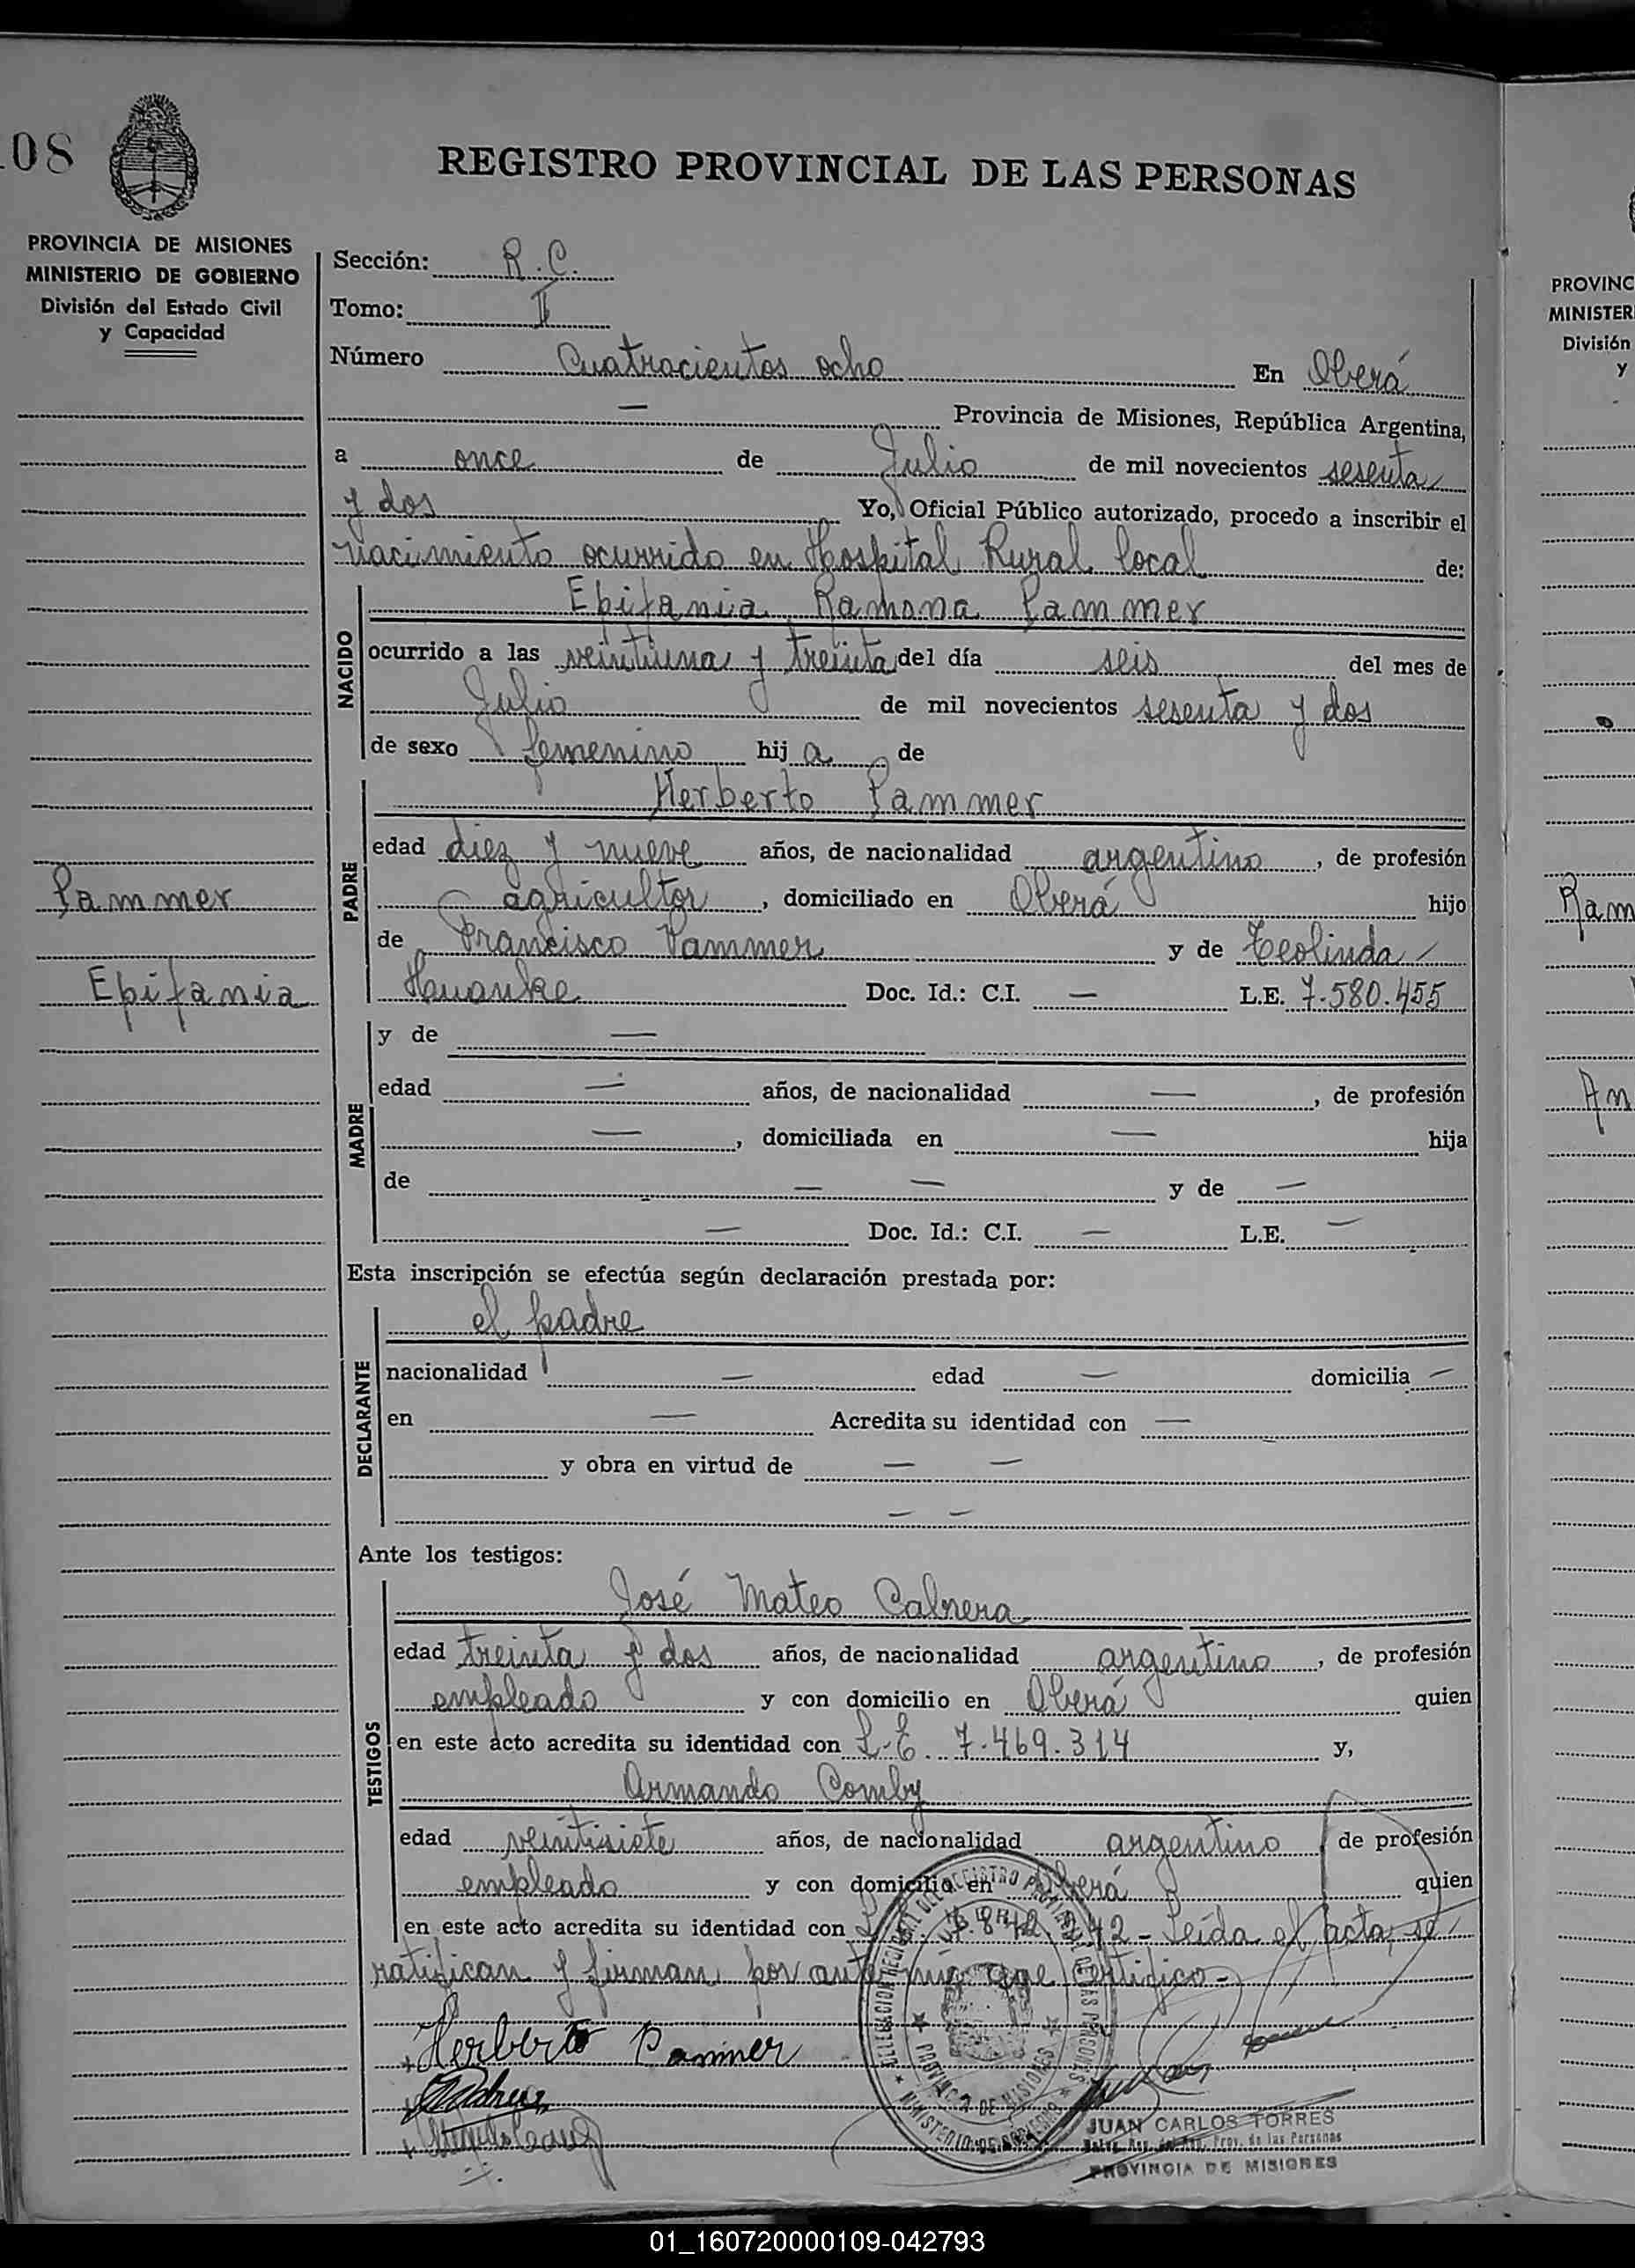 .08
REGISTRO PROVINCIAL DE LAS PERSONAS
PROVINCIA DE MISIONES
MINISTERIO DE GOBIERNO
División del Estado Civil
y Capacidad
Sección: R.C.
Tomo: II
Número Cuatrocientos ocho En Oberá
— Provincia de Misiones, República Argentina,
a once de Julio de mil novecientos sesenta
y dos Yo, Oficial Público autorizado, procedo a inscribir el
nacimiento ocurrido en Hospital Rural local de:
NACIDO
Epifania Ramona Pammer
ocurrido a las veintiuna y treinta del día seis del mes de
Julio de mil novecientos sesenta y dos
de sexo femenino hij a de
PADRE
Herberto Pammer
edad diez y nueve años, de nacionalidad argentino, de profesión
agricultor, domiciliado en Oberá hijo
de Francisco Pammer y de Teolinda
Hunanke Doc. Id.: C.I. — L.E. 7.580.455
Pammer
Epifania
MADRE
y de —
edad — años, de nacionalidad —, de profesión
—, domiciliada en — hija
de — — y de —
— Doc. Id.: C.I. — L.E. —
Esta inscripción se efectúa según declaración prestada por:
DECLARANTE
el padre
nacionalidad — edad — domicilia —
en — Acredita su identidad con —
y obra en virtud de — —
— —
Ante los testigos:
TESTIGOS
José Mateo Cabrera
edad treinta y dos años, de nacionalidad argentino, de profesión
empleado y con domicilio en Oberá quien
en este acto acredita su identidad con L.E. 7.469.314 y,
Armando Comby
edad veintisiete años, de nacionalidad argentino de profesión
empleado y con domicilio en Oberá quien
en este acto acredita su identidad con 42 - Leída el acta, se
ratifican y firman por ante mí que certifico -
Herberto Pammer
DELEGACION REGIONAL DEL REGISTRO PROVINCIAL DE LAS PERSONAS
MINISTERIO DE GOBIERNO
PROVINCIA DE MISIONES
JUAN CARLOS TORRES
Prov. de las Personas
PROVINCIA DE MISIONES
PROVINC
MINISTER
División
y
Ram
An
01_160720000109-042793